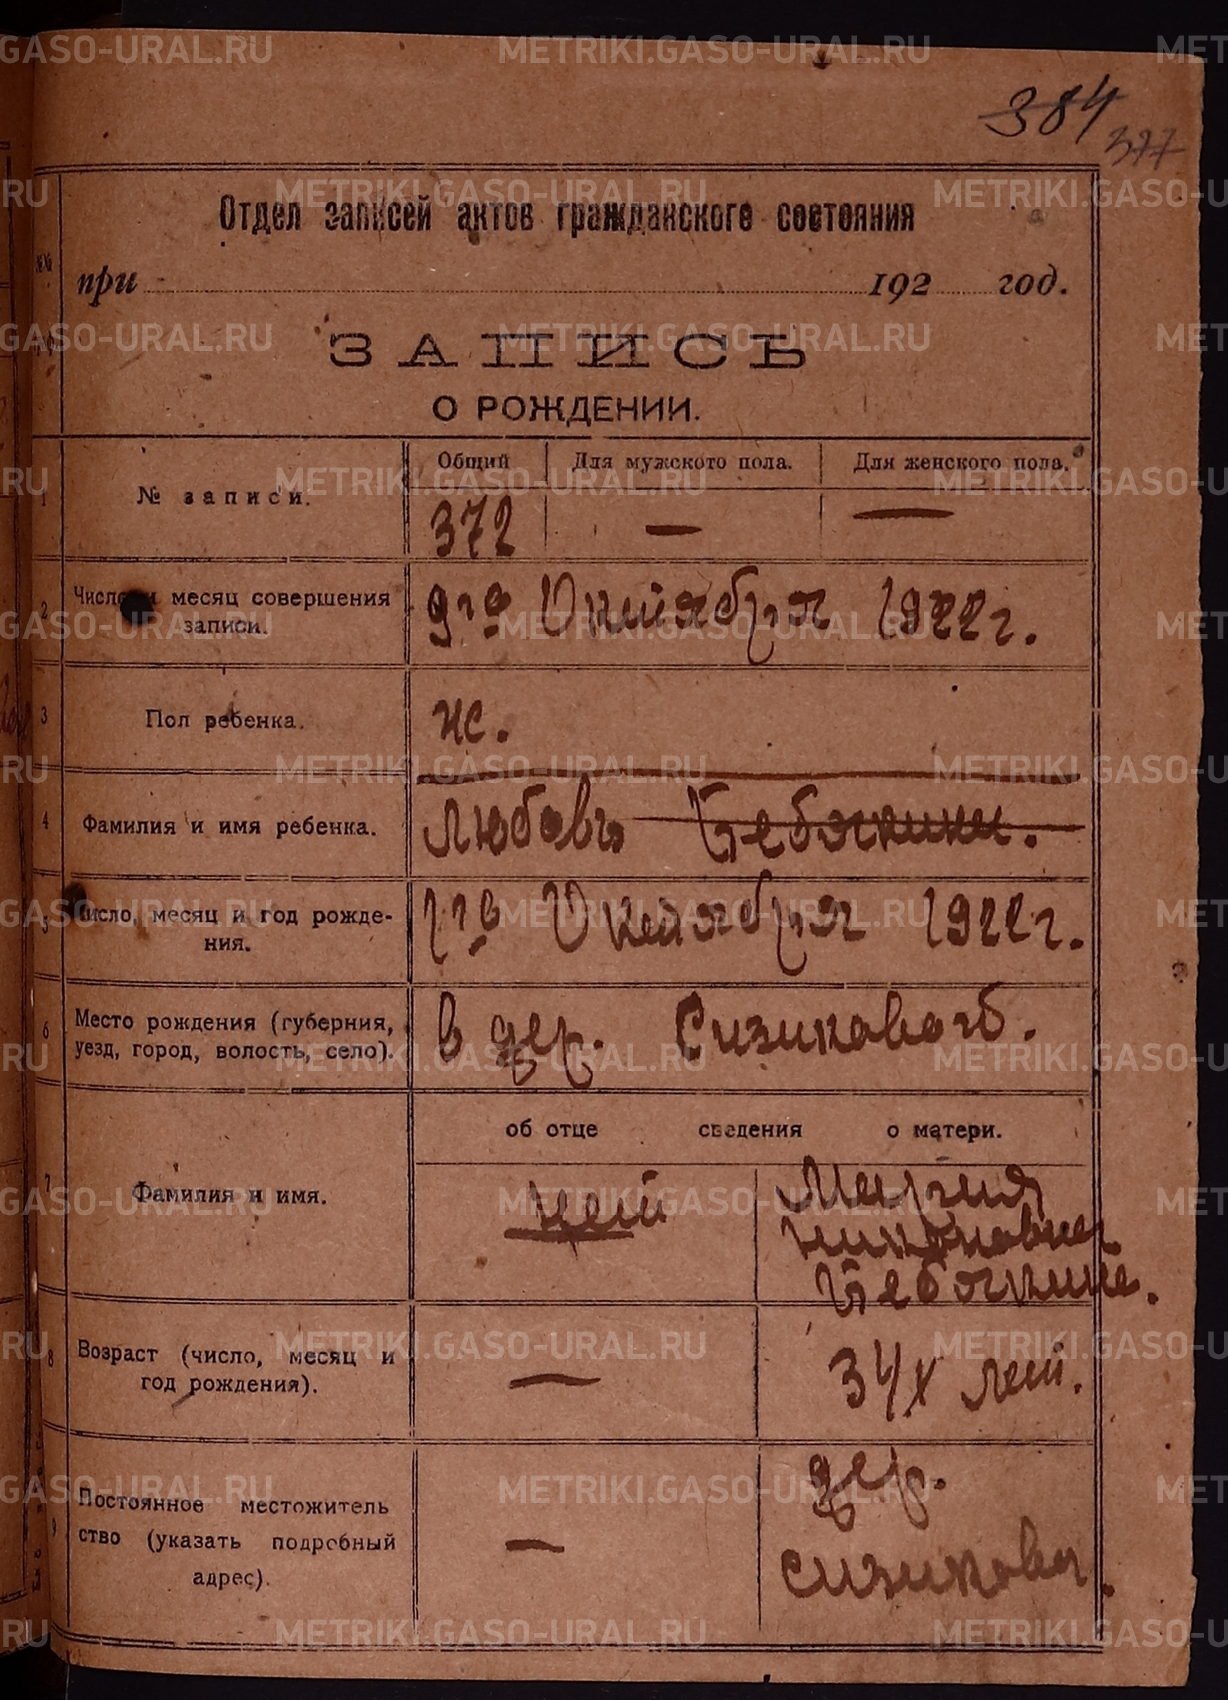 384
377
Отдел записей актов гражданского состояния
при 192 год.
ЗАПИСЬ
О РОЖДЕНИИ.
Общий Для мужского пола. Для женского пола.
1 № записи.
372 — —
2 Число и месяц совершения записи.
9го Октября 1922 г.
3 Пол ребенка.
ж.
4 Фамилия и имя ребенка.
Любовь
5 Число, месяц и год рождения.
1го Октября 1922 г.
6 Место рождения (губерния, уезд, город, волость, село).
в дер. Сизиковой.
об отце сведения о матери.
7 Фамилия и имя.
нет
Мария
Никоновна
8 Возраст (число, месяц и год рождения).
— 34х лет.
9 Постоянное местожитель
ство (указать подробный
адрес).
— дер.
Сизикова.
METRIKI.GASO-URAL.RU